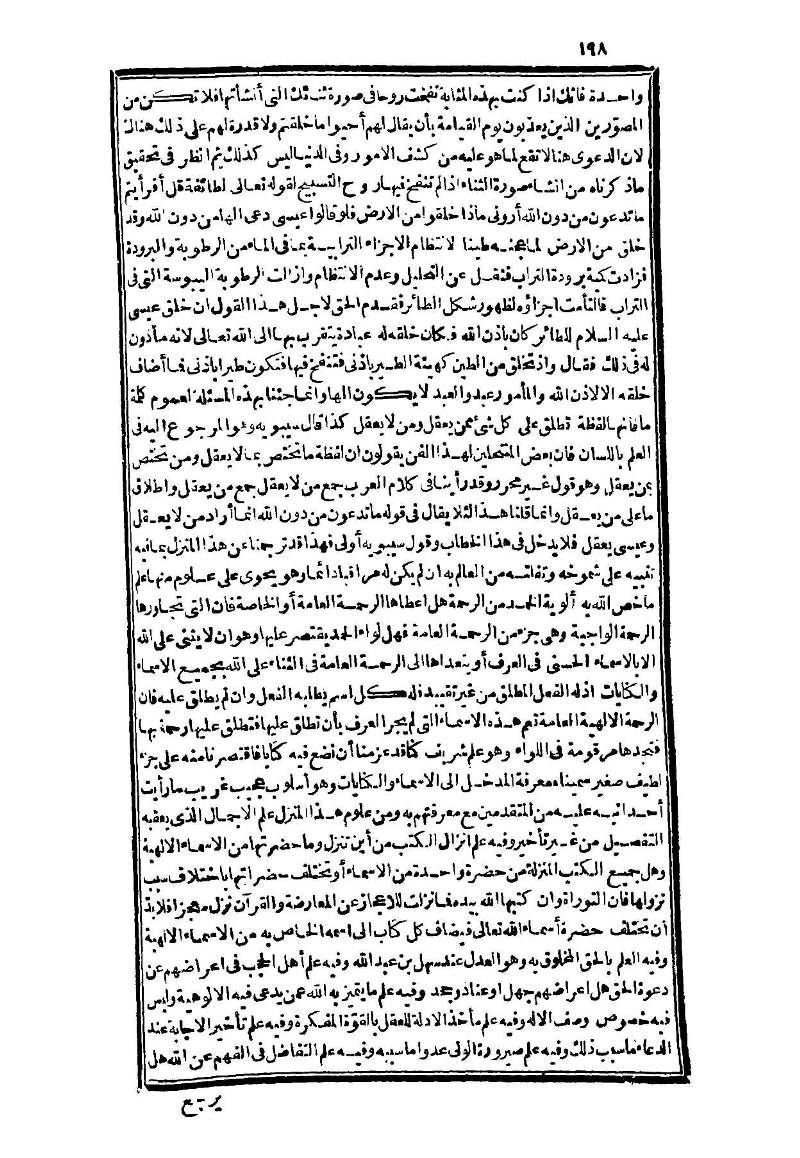 ١٩٨
واحدة فانك اذا كنت بهذه المثابة نفخت روحا فى صورة ثنائك التى أنشأتها فلا تكن من
المصورين الذين يعذبون يوم القيامة بأن يقال لهم أحيوا ما خلقتم ولا قدرة لهم على ذلك هنالك
لان الدعوى هنالا تقع لما هو عليه من كشف الامور وفى الدنيا ليس كذلك ثم انظر فى تحقيق
ماذكرناه من انشاء صورة الثناء اذا لم تنفخ فيها روح التسبيح لقوله تعالى لطائفة قل أفرأيتم
ما تدعون من دون الله أرونى ماذا خلقوا من الارض فلو قالوا عيسى دعى الها من دون الله وقد
خلق من الارض لما عجنه طينا لانتظام الاجزاء الترابية بما فى الماء من الرطوبة والبرودة
فزادت كمية برودة التراب فثقل عن التحليل وعدم الانتظام وازالت الرطوبة اليبوسة التى فى
التراب فالتأمت اجزاؤه لظهور شكل الطائر فقدم الحق لاجل هذا القول ان خلق عيسى
عليه السلام للطائر كان باذن الله فكان خلقه له عبادة يتقرب بها الى الله تعالى لانه مأذون
له فى ذلك فقال واذ تخلق من الطين كهيئة الطير باذنى فتنفخ فيها فتكون طيرا باذنى فما أضاف
خلقه الا لاذن الله والمأمور عبد والعبد لا يكون الها وانما جئنا بهذه المسئلة لعموم كلمة
ما فانها لفظة تطلق على كل شئ ممن يعقل ومن لا يعقل كذا قال سيبويه وهو المرجوع اليه فى
العلم باللسان فان بعض المنتحلين لهذا الفن يقولون ان لفظة ما تختص بما لا يعقل ومن تختص
بمن يعقل وهو قول غير محرر وقد رأينا فى كلام العرب جمع من لا يعقل جمع من يعقل واطلاق
ما على من يعقل وانما قلنا هذا لئلا يقال فى قوله ما تدعون من دون الله انما أراد من لا يعقل
وعيسى يعقل فلا يدخل فى هذا الخطاب وقول سيبويه أولى فهذا قد ترجمنا عن هذا المنزل بما فيه
تنبيه على شموخه وتفاسته من العالم به ان لم يكن له من اقباد انما وهو يحوى على علوم منها علم
ما خص الله به ألوية الحمد من الرحمة هل اعطاها الرحمة العامة أو الخاصة فان التى تجاورها
الرحمة الواجبة وهى جزء من الرحمة العامة فهل لواء الحمد يقتصر عليها وهو ان لا يثنى على الله
الا بالاسماء الحسنى فى العرف أو يتعداها الى الرحمة العامة فى الثناء على الله بجميع الاسماء
والكنايات اذ له الفعل المطلق من غير تقييد فله كل اسم يطلبه الفعل وان لم يطلق عليه فان
الرحمة الالهية العامة تعم هذه الاسماء التى لم يجر العرف بأن تطلق عليها فتطلق عليها رحمة بها
فتجدها مرقومة فى اللواء وهو علم شريف كنا قد عزمنا أن نضع فيه كتابا فاقتصرنا منه على جزء
لطيف صغير سميناه معرفة المدخل الى الاسماء والكنايات وهو أسلوب عجيب غريب ما رأيت
أحدا نبه عليه من المتقدمين مع معرفتهم به ومن علوم هذا المنزل علم الاجمال الذى يعقبه
التفصيل من غير تأخير وفيه علم انزال الكتب من أين تنزل وما حضرتها من الاسماء الالهية
وهل جميع الكتب المنزلة من حضرة واحدة من الاسماء أو تختلف حضراتها باختلاف سبب
نزولها فان التوراة وان كتبها الله بيده فما نزلت للاعجاز عن المعارضة والقرآن نزل معجزا فلا بد
أن تختلف حضرة أسماء الله تعالى فيضاف كل كتاب الى اسمه الخاص به من الاسماء الالهية
وفيه العلم بالحق المخلوق به وهو العدل عند سهل بن عبد الله وفيه علم أهل الحجب فى اعراضهم عن
دعوة الحق هل اعراضهم جهل او عناد وجحد وفيه علم ما يتميز به الله عمن يدعى فيه الالوهية وليس
فيه خصوص وصف الاله وفيه علم مأخذ الادلة للعقل بالقوة المفكرة وفيه علم تأخير الاجابة عند
الدعاء ما سبب ذلك وفيه علم صيرورة الولى عدوا ما سببه وفيه علم التفاضل فى الفهم عن الله هل
يرجع